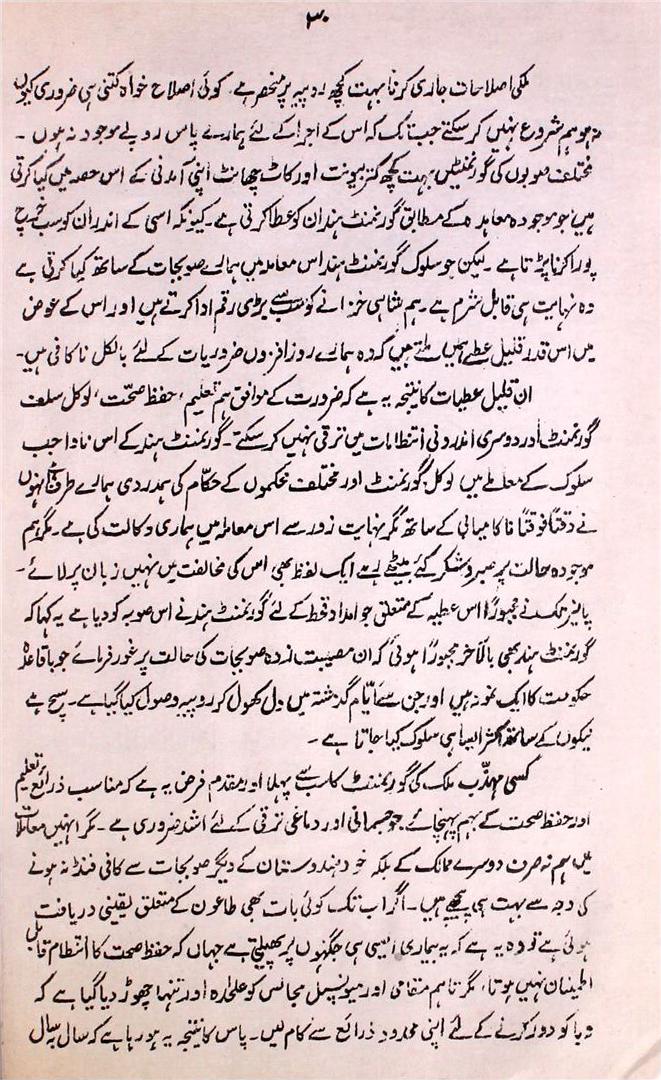 ۳۰
ملکی اصلاحات جاری کرنا بہت کچھ روپیہ پر منحصر ہے۔ کوئی اصلاح خواہ کتنی ہی ضروری کیوں
نہ ہو ہم شروع نہیں کر سکتے جب تک کہ اس کے اجرا کے لئے ہمارے پاس روپے موجود نہ ہوں۔
مختلف صوبوں کی گورنمنٹیں بہت کچھ کتر بیونت اور کاٹ چھانٹ اپنی آمدنی کے اس حصہ میں کیا کرتی
ہیں جو موجودہ معاہدہ کے مطابق گورنمنٹ ہند ان کو عطا کرتی ہے۔ کیونکہ اسی کے اندر ان کو سب خرچ
پورا کرنا پڑتا ہے۔ لیکن جو سلوک گورنمنٹ ہند اس معاملہ میں ہمارے صوبجات کے ساتھ کیا کرتی ہے
وہ نہایت ہی قابل شرم ہے۔ ہم شاہی خزانے کو سب سے بڑی رقم ادا کرتے ہیں اور اس کے عوض
میں اس قدر قلیل عطیے ہمیں ملتے ہیں کہ وہ ہمارے روز افزوں ضروریات کے لئے بالکل ناکافی ہیں۔
ان قلیل عطیات کا نتیجہ یہ ہے کہ ضرورت کے موافق ہم تعلیم، حفظ صحت، لوکل سلف
گورنمنٹ اور دوسری اندرونی انتظامات میں ترقی نہیں کر سکتے۔ گورنمنٹ ہند کے اس ناواجب
سلوک کے معاملے میں لوکل گورنمنٹ اور مختلف محکموں کے حکام کی ہمدردی ہمارے طرف ہے جنہوں
نے وقتاً فوقتاً ناکامیابی کے ساتھ مگر نہایت زور سے اس معاملہ میں ہماری وکالت کی ہے۔ مگر ہم
موجودہ حالت پر صبر و شکر کئے بیٹھے رہے ایک لفظ بھی اس کی مخالفت میں نہیں زبان پر لائے۔
پانیر تک نے مجبوراً اس عطیہ کے متعلق جو امداد قحط کے لئے گورنمنٹ ہند نے اس صوبہ کو دیا ہے یہ کہا کہ
گورنمنٹ ہند بھی بالآخر مجبوراً ہوئی کہ ان مصیبت زدہ صوبجات کی حالت پر غور فرمائے جو باقاعدہ
حکومت کا ایک نمونہ ہیں اور جن سے ایام گذشتہ میں دل کھول کر روپیہ وصول کیا گیا ہے۔ سچ ہے
نیکوں کے ساتھ اکثر ایسا ہی سلوک کیا جاتا ہے۔
کسی مہذب ملک کی گورنمنٹ کا سب سے پہلا اور مقدم فرض یہ ہے کہ مناسب ذرائع تعلیم
اور حفظ صحت کے بہم پہنچائے جو جسمانی اور دماغی ترقی کے لئے اشد ضروری ہے۔ مگر انہیں معاملات
میں ہم نہ صرف دوسرے ممالک کے بلکہ خود ہندوستان کے دیگر صوبجات سے کافی فنڈ نہ ہونے
کی وجہ سے بہت ہی پیچھے ہیں۔ اگر اب تک کوئی بات بھی طاعون کے متعلق یقینی دریافت
ہوئی ہے تو وہ یہ ہے کہ یہ بیماری ایسی ہی جگہوں پر پھیلتی ہے جہاں کہ حفظ صحت کا انتظام قابل
اطمینان نہیں ہوتا، مگر تاہم مقامی اور میونسپل مجالس کو علٰحدہ اور تنہا چھوڑ دیا گیا ہے کہ
وبا کو دور کرنے کے لئے اپنی محدود ذرائع سے کام لیں۔ پاس کا نتیجہ یہ ہو رہا ہے کہ سال بہ سال